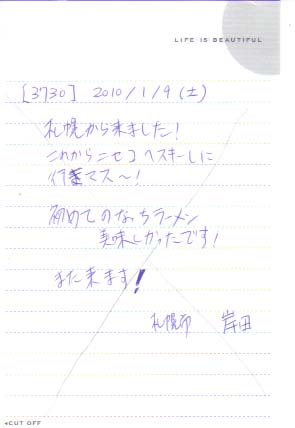 LIFE IS BEAUTIFUL
[3730] 2010/1/9(土)
札幌から来ました!
これからニセコへスキーしに
行きマス〜!
初めてのなっちラーメン
美味しかったです!
また来ます!
札幌市 岸田
◂CUT OFF